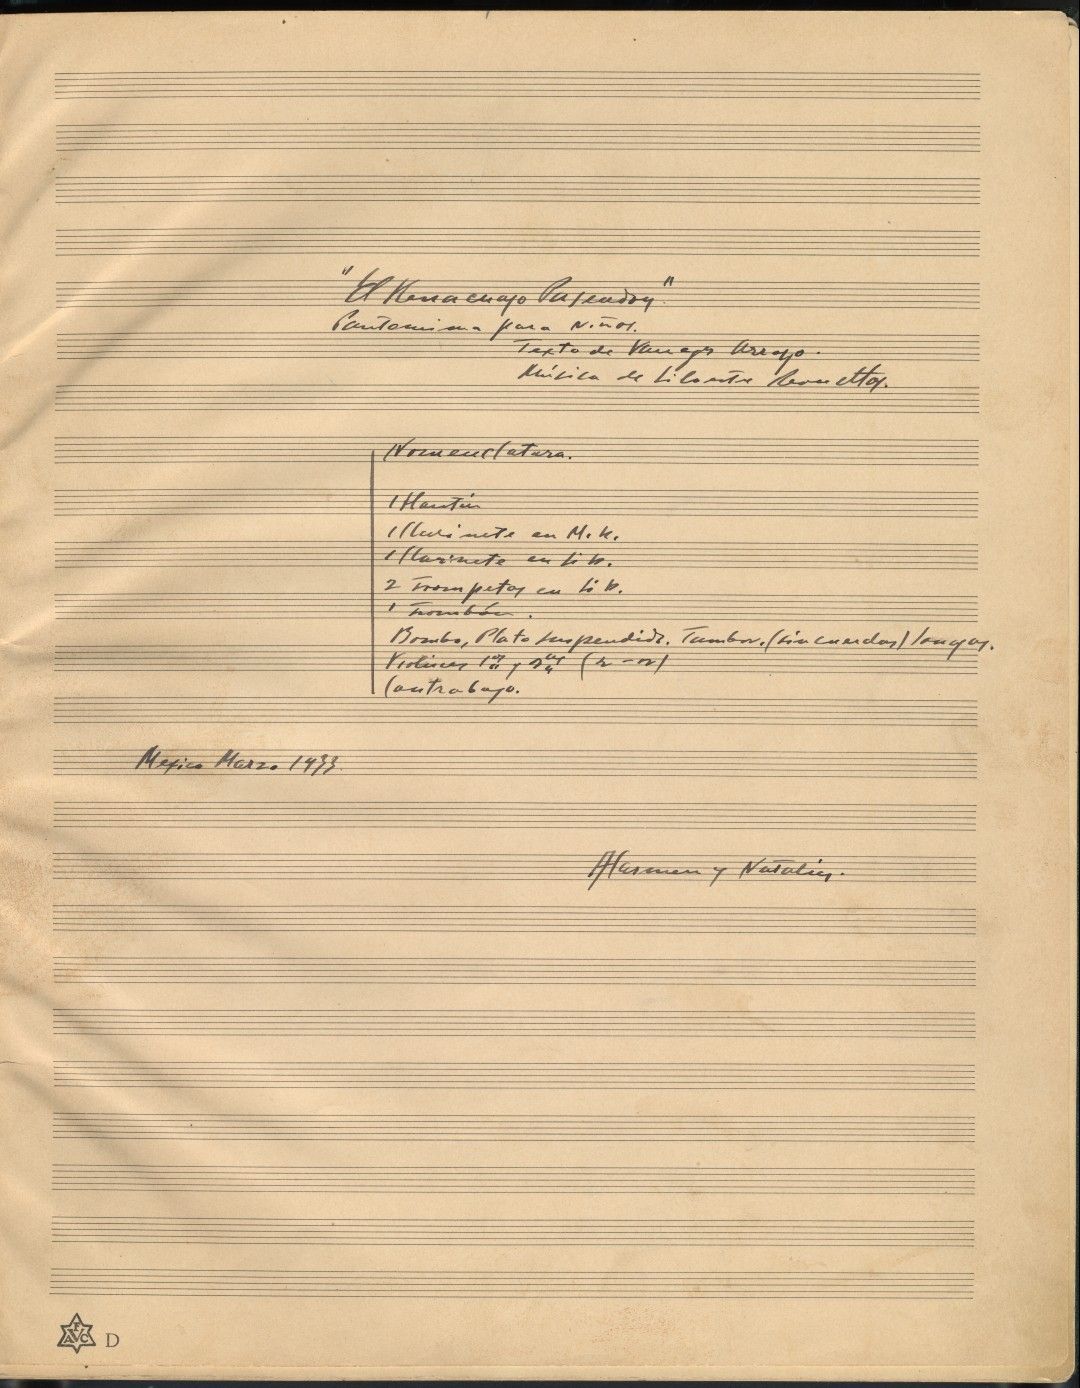 "El Renacuajo Paseador"
Pantomima para Niños.
Texto de Vanegas Arroyo.
Música de Silvestre Revueltas.
Nomenclatura.
1 Flautín
1 Clarinete en Mi b.
1 Clarinete en Si b.
2 Trompetas en Si b.
1 Trombón.
Bombo, Plato suspendido. Tambor. (sin cuerdas)
Violines 1os y 2os (2-2)
Contrabajo.
Mexico Marzo 1933.
A Carmen y Natalia.
FAVC D